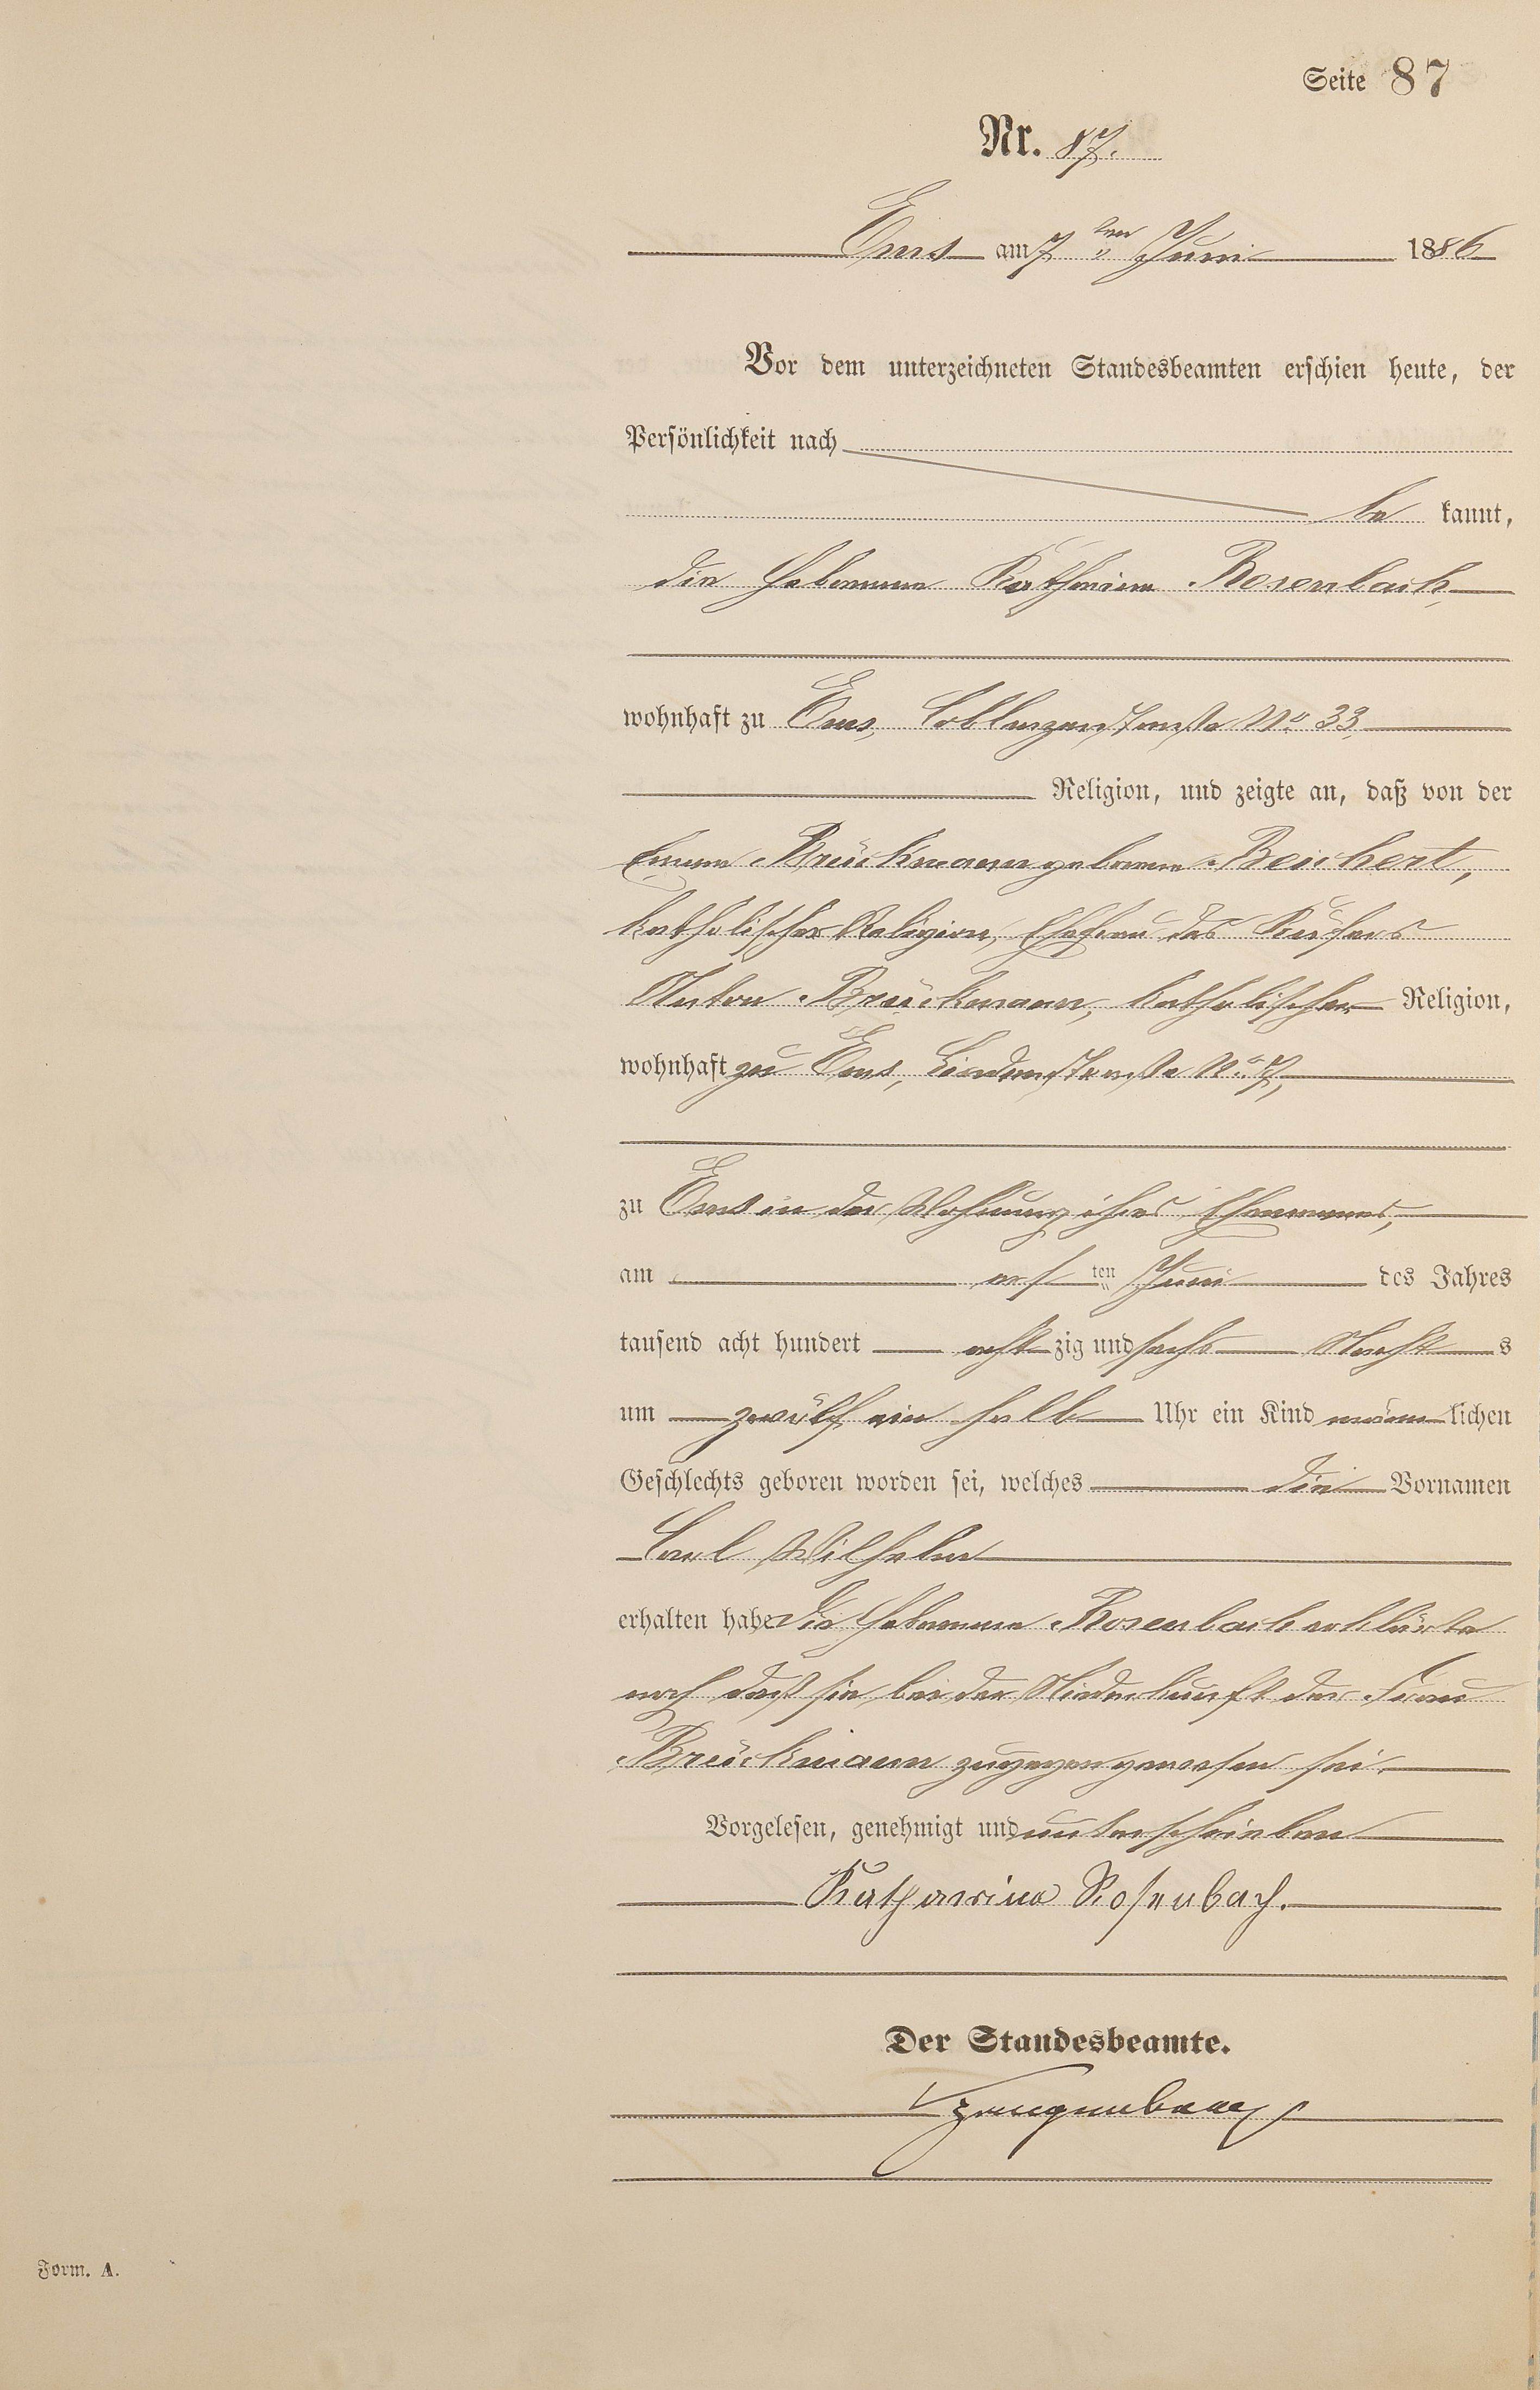 Seite 87
Nr. 87.
Ems am 7 ten Juni 1886
Vor dem unterzeichneten Standesbeamten erschien heute, der
Persönlichkeit nach
be kannt,
die Hebamme Katharina Rosenbach,
wohnhaft zu Ems, Coblenzerstraße No 33,
Religion, und zeigte an, daß von der
Emma Brückmann geborene Beichert,
katholischer Religion, Ehefrau des Küfers
Anton Brückmann, katholischer Religion,
wohnhaft zu Ems, Lindenstraße No. 7,
zu Ems in der Wohnung ihres Ehemannes,
am ersten Juni des Jahres
tausend acht hundert achtzig und sechs Nachts
um zwölf ein halb Uhr ein Kind männlichen
Geschlechts geboren worden sei, welches die Vornamen
Carl Wilhelm
erhalten habe. Die Hebamme Rosenbach erklärte
noch daß sie bei der Niederkunft der Frau
Brückmann zugegen gewesen sei.
Vorgelesen, genehmigt und unterschrieben
Katharina Rosenbach.
Der Standesbeamte.
Form. A.